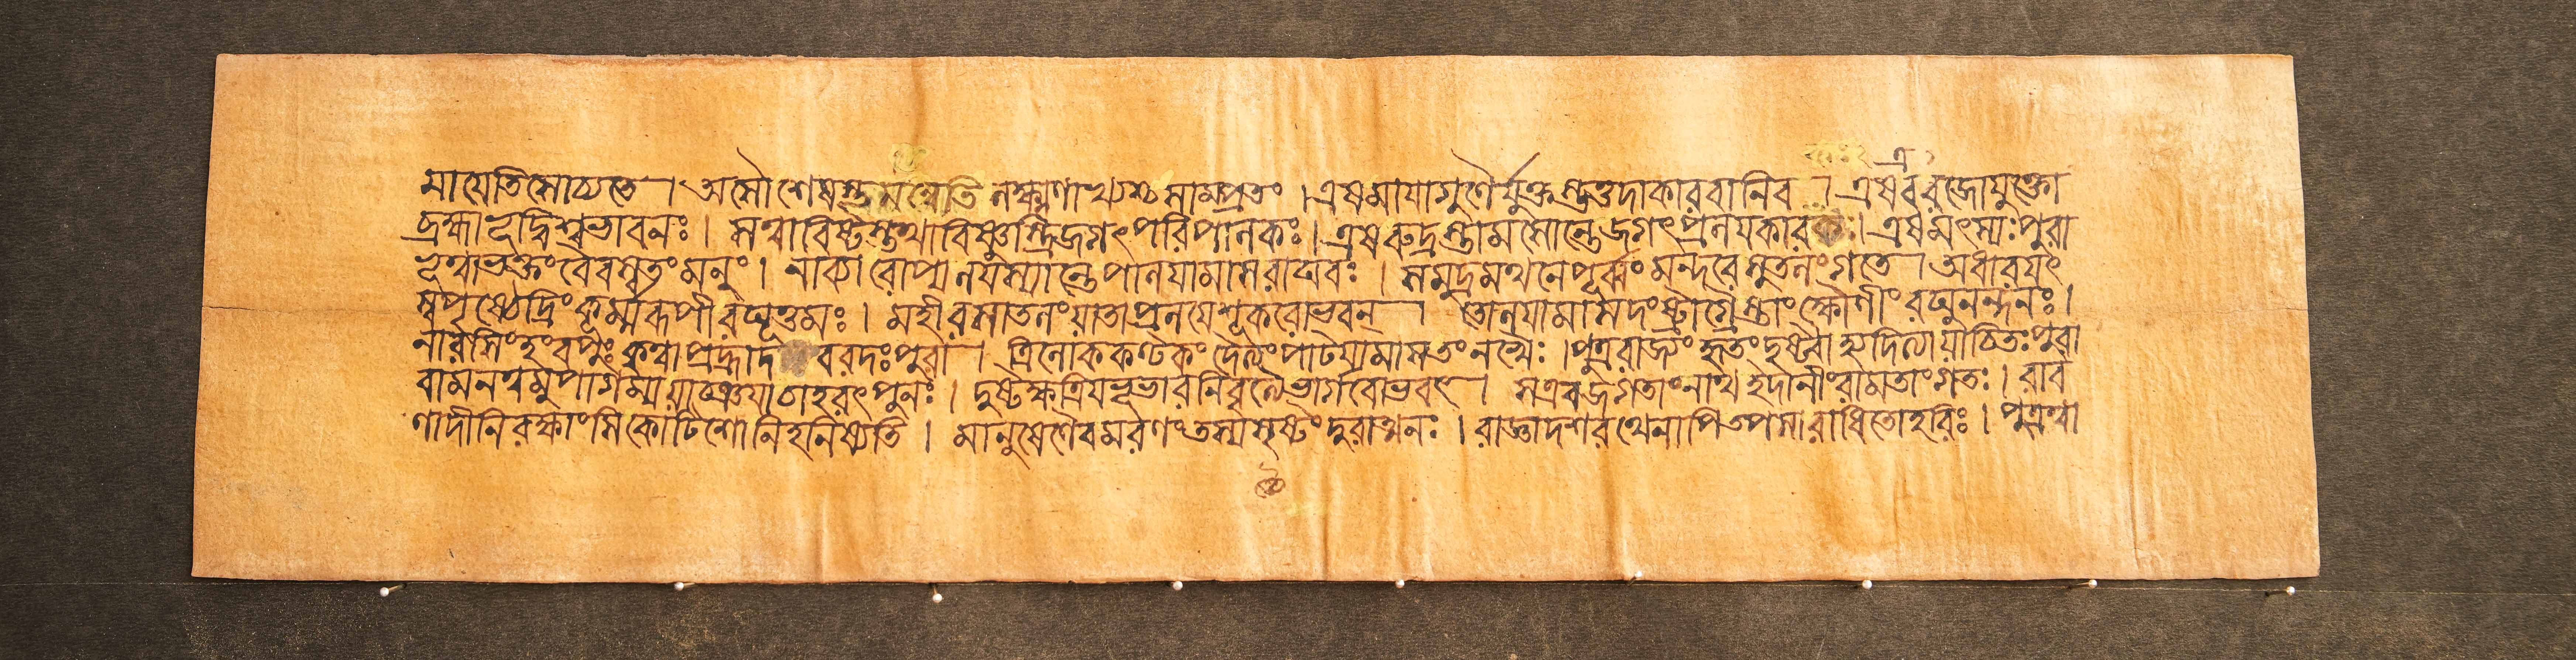 মায়েতিসোচ্যতে। অসৌশেষস্তমন্বেতি লক্ষ্মণাখ্যশ্চসাম্প্রতং। এষমায়াগুণৈর্যুক্তস্তত্তদাকারবানিব। এষএবরজোযুক্তো
ব্রহ্মাভূদ্বিশ্বভাবনঃ। সত্বাবিষ্টস্তথাবিষ্ণুস্ত্রিজগৎপরিপালকঃ। এষরুদ্রস্তামসোন্তেজগৎপ্রলয়কারকঃ। এষমৎস্যঃপুরা
ভূত্বাভক্তংবৈবস্বতংমনুং। নাব্যারোপ্যলয়স্যান্তেপালয়ামাসরাঘবঃ। সমুদ্রমথনেপূর্ব্বংমন্দরেসুতলংগতে। অধারয়ৎ
স্বপৃষ্ঠেদ্রিংকূর্ম্মরূপীরঘূত্তমঃ। মহীরসাতলংয়াতাপ্রলয়েশূকরোভবৎ। তোলয়ামাসদংষ্ট্রাগ্রেস্তাংক্ষৌণীংরঘুনন্দনঃ।
নারসিংহংবপুঃকৃত্বাপ্রহ্লাদ বরদঃপুরা। ত্রিলোককণ্টকংদৈত্যংপাটয়ামাসতংনখৈঃ। পুত্ররাজ্যংহৃতংদৃষ্ট্বাহ্যদিত্যায়াচিতঃপুরা
বামনত্বমুপাগম্যয়াচ্ঞয়াচাহরৎপুনঃ। দুষ্টক্ষত্রিয়ভূভারনিবৃত্যৈভার্গবোভবৎ। সএবজগতাংনাথইদানীংরামতাংগতঃ। রাব
ণাদীনিরক্ষাংসিকোটিশোনিহনিষ্যতি। মানুষেণৈবমরণংতস্যদৃষ্টংদুরাত্মনঃ। রাজ্ঞাদশরথেনাপিতপসারাধিতোহরিঃ। পুত্রত্বা